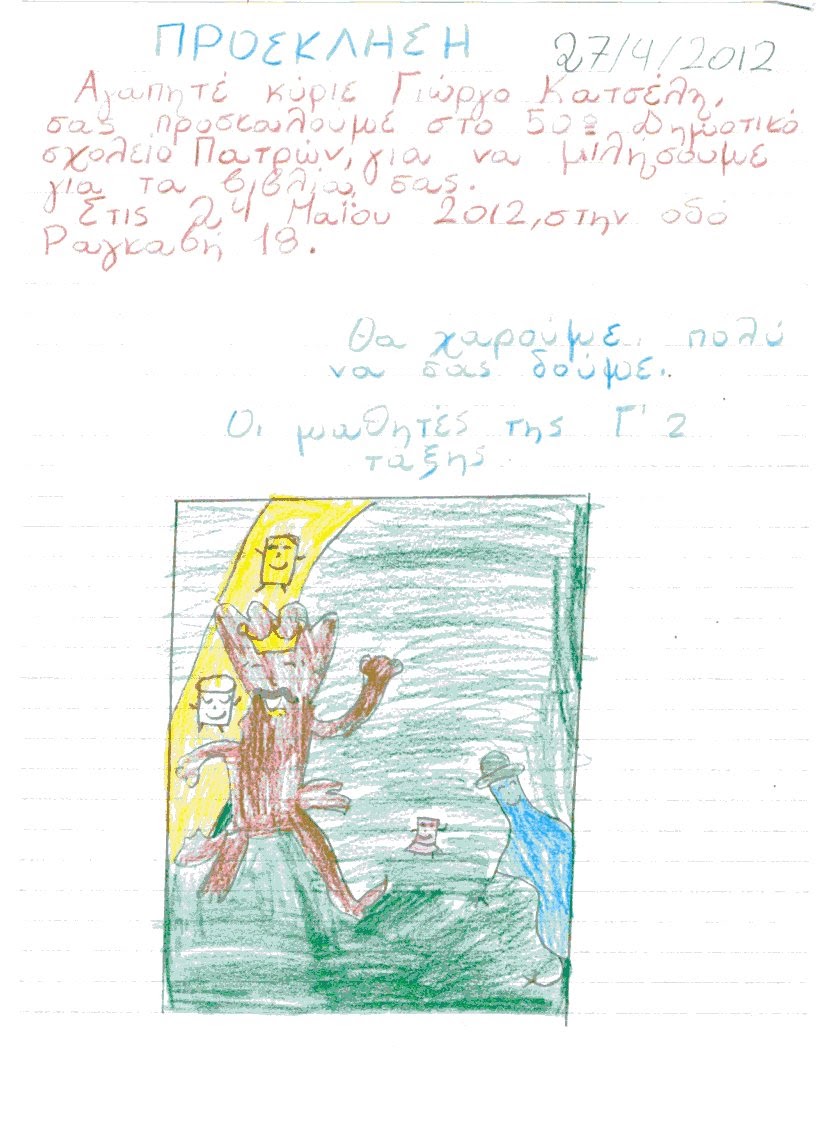 ΠΡΟΣΚΛΗΣΗ 27/4/2012
Αγαπητέ κύριε Γιώργο Κατσέλη,
σας προσκαλούμε στο 50º Δημοτικό
σχολείο Πατρών, για να μιλήσουμε
για τα βιβλία σας.
Στις 24 Μαΐου 2012, στην οδό
Ραγκαβή 18.
Θα χαρούμε πολύ
να σας δούμε.
Οι μαθητές της Γ' 2
ταξης